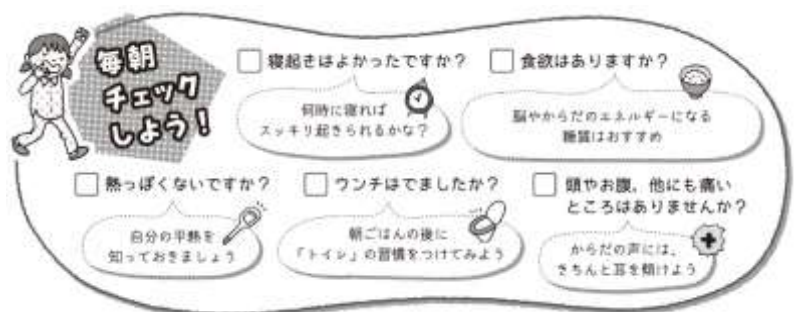 毎朝
チェック
しよう！
□ 寝起きはよかったですか？
何時に寝れば
スッキリ起きられるかな？
□ 食欲はありますか？
脳やからだのエネルギーになる
糖質はおすすめ
□ 熱っぽくないですか？
自分の平熱を
知っておきましょう
□ ウンチはでましたか？
朝ごはんの後に
「トイレ」の習慣をつけてみよう
□ 頭やお腹，他にも痛い
ところはありませんか？
からだの声には，
きちんと耳を傾けよう